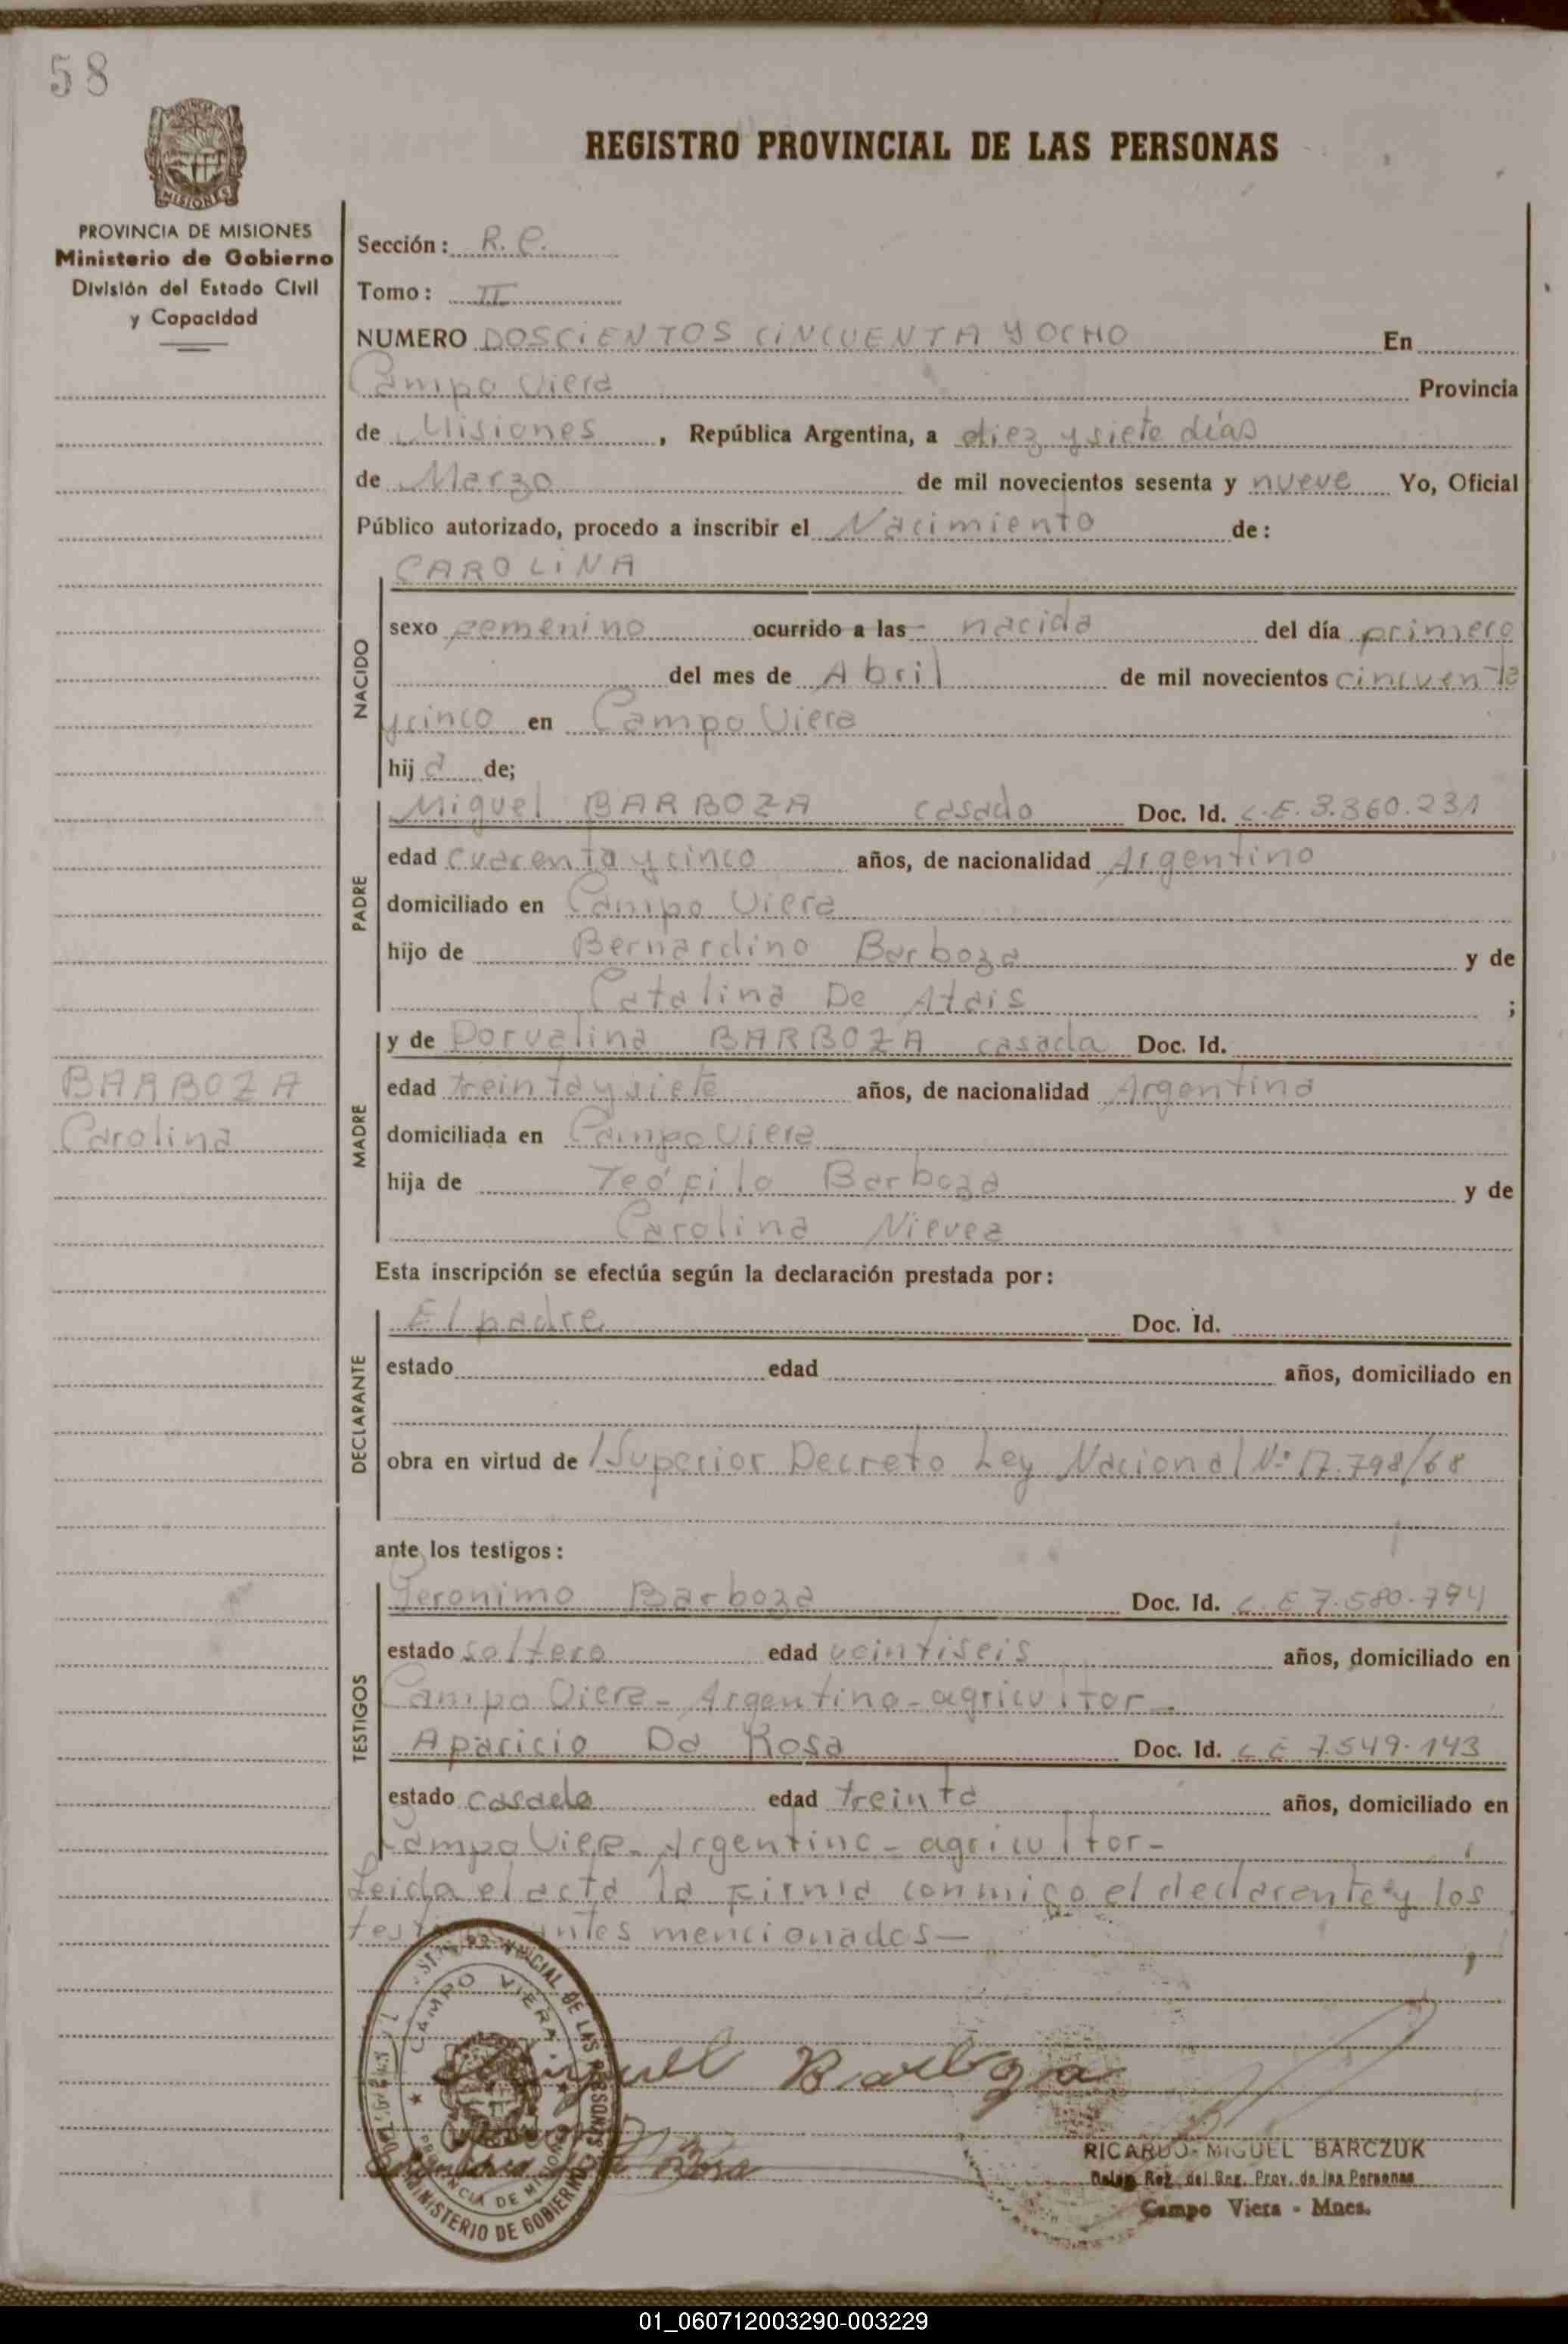 58
REGISTRO PROVINCIAL DE LAS PERSONAS
PROVINCIA DE MISIONES
Ministerio de Gobierno
División del Estado Civil
y Capacidad
Sección: R. C.
Tomo: II
NUMERO DOSCIENTOS CINCUENTA Y OCHO En
Campo Viera Provincia
de Misiones, República Argentina, a diez y siete días
de Marzo de mil novecientos sesenta y nueve Yo, Oficial
Público autorizado, procedo a inscribir el Nacimiento de:
NACIDO
CAROLINA
sexo femenino ocurrido a las nacida del día primero
del mes de Abril de mil novecientos cincuenta
y cinco en Campo Viera
hija de;
PADRE
Miguel BARBOZA casado Doc. Id. L.E. 3.360.231
edad cuarenta y cinco años, de nacionalidad Argentino
domiciliado en Campo Viera
hijo de Bernardino Barboza y de
Catalina De Atais ;
BARBOZA
Carolina
MADRE
y de Dorvalina BARBOZA casada Doc. Id.
edad treinta y siete años, de nacionalidad Argentina
domiciliada en Campo Viera
hija de Teófilo Barboza y de
Carolina Nievez
Esta inscripción se efectúa según la declaración prestada por:
DECLARANTE
El padre Doc. Id.
estado edad años, domiciliado en
obra en virtud de Superior Decreto Ley Nacional Nº 17.798/68
ante los testigos:
TESTIGOS
Geronimo Barboza Doc. Id. L.E 7.580.794
estado soltero edad veintiseis años, domiciliado en
Campo Viera - Argentino - agricultor -
Aparicio Da Rosa Doc. Id. L E 7.549.143
estado casado edad treinta años, domiciliado en
Campo Viera - Argentino - agricultor -
Leida el acta la firma conmigo el declarente y los
antes mencionados -
Miguel Barboza
Rosa
CAMPO VIERA
PROVINCIA DE MISIONES
MINISTERIO DE GOBIERNO
RICARDO MIGUEL BARCZUK
Deleg. Rez. del Reg. Prov. de las Personas
Campo Viera - Mnes.
01_060712003290-003229